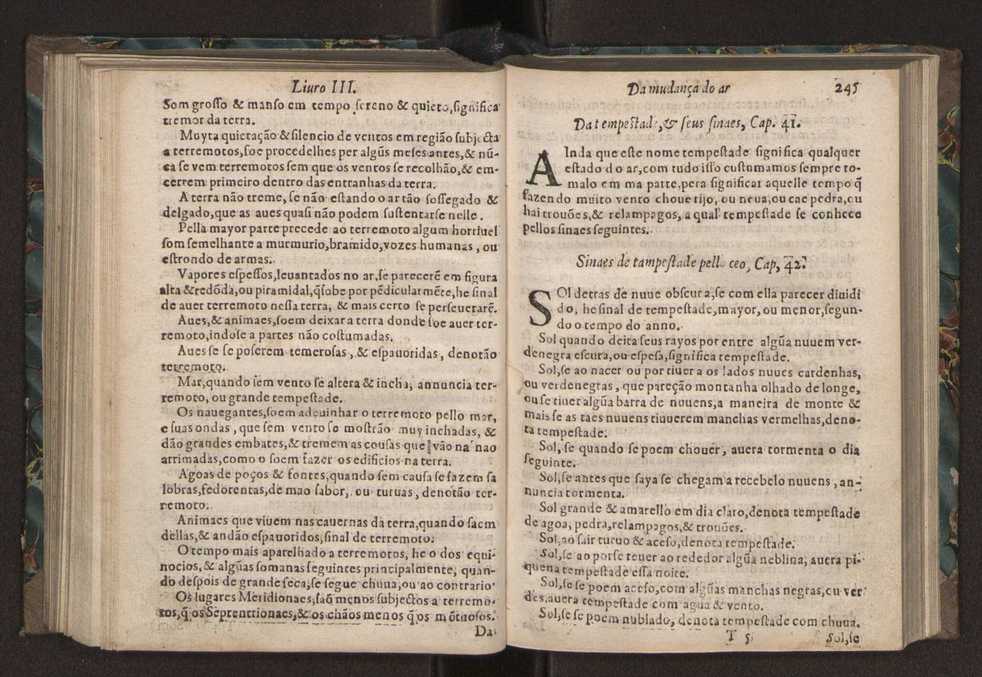 Liuro III.
Som grosso & manso em tempo sereno & quieto, significa
tremor da terra.
Muyta quietação & silencio de ventos em região subjecta
a terremotos, soe procedelhes per algũs meses antes, & nũ-
ca se vem terremotos sem que os ventos se recolhão, & em-
cerrem primeiro dentro das entranhas da terra.
A terra não treme, se não estando o ar tão sossegado &
delgado, que as aues quasi não podem sustentarse nelle.
Pella mayor parte precede ao terremoto algum horriuel
som semelhante a murmurio, bramido, vozes humanas, ou
estrondo de armas.
Vapores espessos, leuantados no ar, se parecerẽ em figura
alta & redõda, ou piramidal, q̃ sobe por pẽdicularmẽte, he sinal
de auer terremoto nessa terra, & mais certo se perseuerarẽ.
Aues, & animaes, soem deixar a terra donde soe auer ter-
remoto, indose a partes não costumadas.
Aues se se poserem temerosas, & espauoridas, denotão
terremoto.
Mar, quando sem vento se altera & incha, annuncia ter-
remoto, ou grande tempestade.
Os nauegantes, soem adeuinhar o terremoto pello mar,
e suas ondas, que sem vento se mostrão muy inchadas, &
dão grandes embates, & tremem as cousas que vão na nao
arrimadas, como o soem fazer os edificios na terra.
Agoas de poços & fontes, quando sem causa se fazem sa
lobras, fedorentas, de mao sabor, ou turuas, denotão ter-
remoto.
Animaes que viuem nas cauernas da terra, quando saem
dellas, & andão espauoridos, sinal de terremoto.
O tempo mais aparelhado a terremotos, he o dos equi-
nocios, & algũas somanas seguintes principalmente, quan-
do despois de grande seca, se segue chuua, ou ao contrario
Os lugares Meridionaes, saõ menos subjectos a terremo-
tos, q̃ os Septentrionaes, & os chãos menos q̃ os mõtuosos.
Da
Da mudança do ar 245
Da tempestade, & seus sinaes, Cap. 41.
AInda que este nome tempestade significa qualquer
estado do ar, com tudo isso custumamos sempre to-
malo em ma parte, pera significar aquelle tempo q̃
fazendo muito vento choue rijo, ou neua, ou cae pedra, ou
hai trouões, & relampagos, a qual tempestade se conhece
pellos sinaes seguintes.
Sinaes de tampestade pello ceo, Cap, 42.
SOl detras de nuue obscura, se com ella parecer diuidi
do, he sinal de tempestade, mayor, ou menor, segun-
do o tempo do anno.
Sol quando deita seus rayos por entre algũa nuuem ver-
denegra escura, ou espesa, significa tempestade.
Sol, se ao nacer ou por tiuer a os lados nuues cardenhas,
ou verdenegras, que pareção montanha olhado de longe,
ou se tiuer algũa barra de nouens, a maneira de monte &
mais se as taes nuuens tiuerem manchas vermelhas, deno-
ta tempestade.
Sol, se quando se poem chouer, auera tormenta o dia
seguinte.
Sol, se antes que saya se chegam a recebelo nuuens, an-
nuncia tormenta.
Sol grande & amarello em dia claro, denota tempestade
de agoa, pedra, relampagos, & trouões.
Sol, ao sair turuo & aceso, denota tempestade.
Sol, se ao porse teuer ao rededor algũa neblina, auera pi-
quena tempestade essa noite.
Sol, se se poem aceso, com algũas manchas negras, ou ver
des, auera tempestade com agua & vento.
Sol, se se poem nublado, denota tempestade com chuua.
T 5 Sol, se